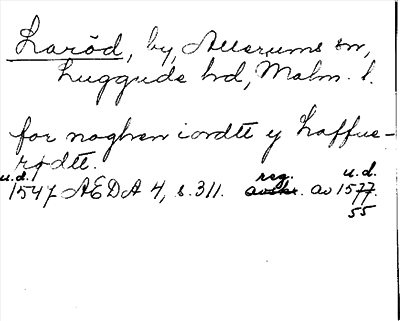 Laröd, by, Allerums sn,
Luggude hd, Malm. l.
for noghen iordtt y Laffue-
rødtt.
u.d. reg. u.d.
1547 AEDA 4, s. 311. avskr. av 1577.
55